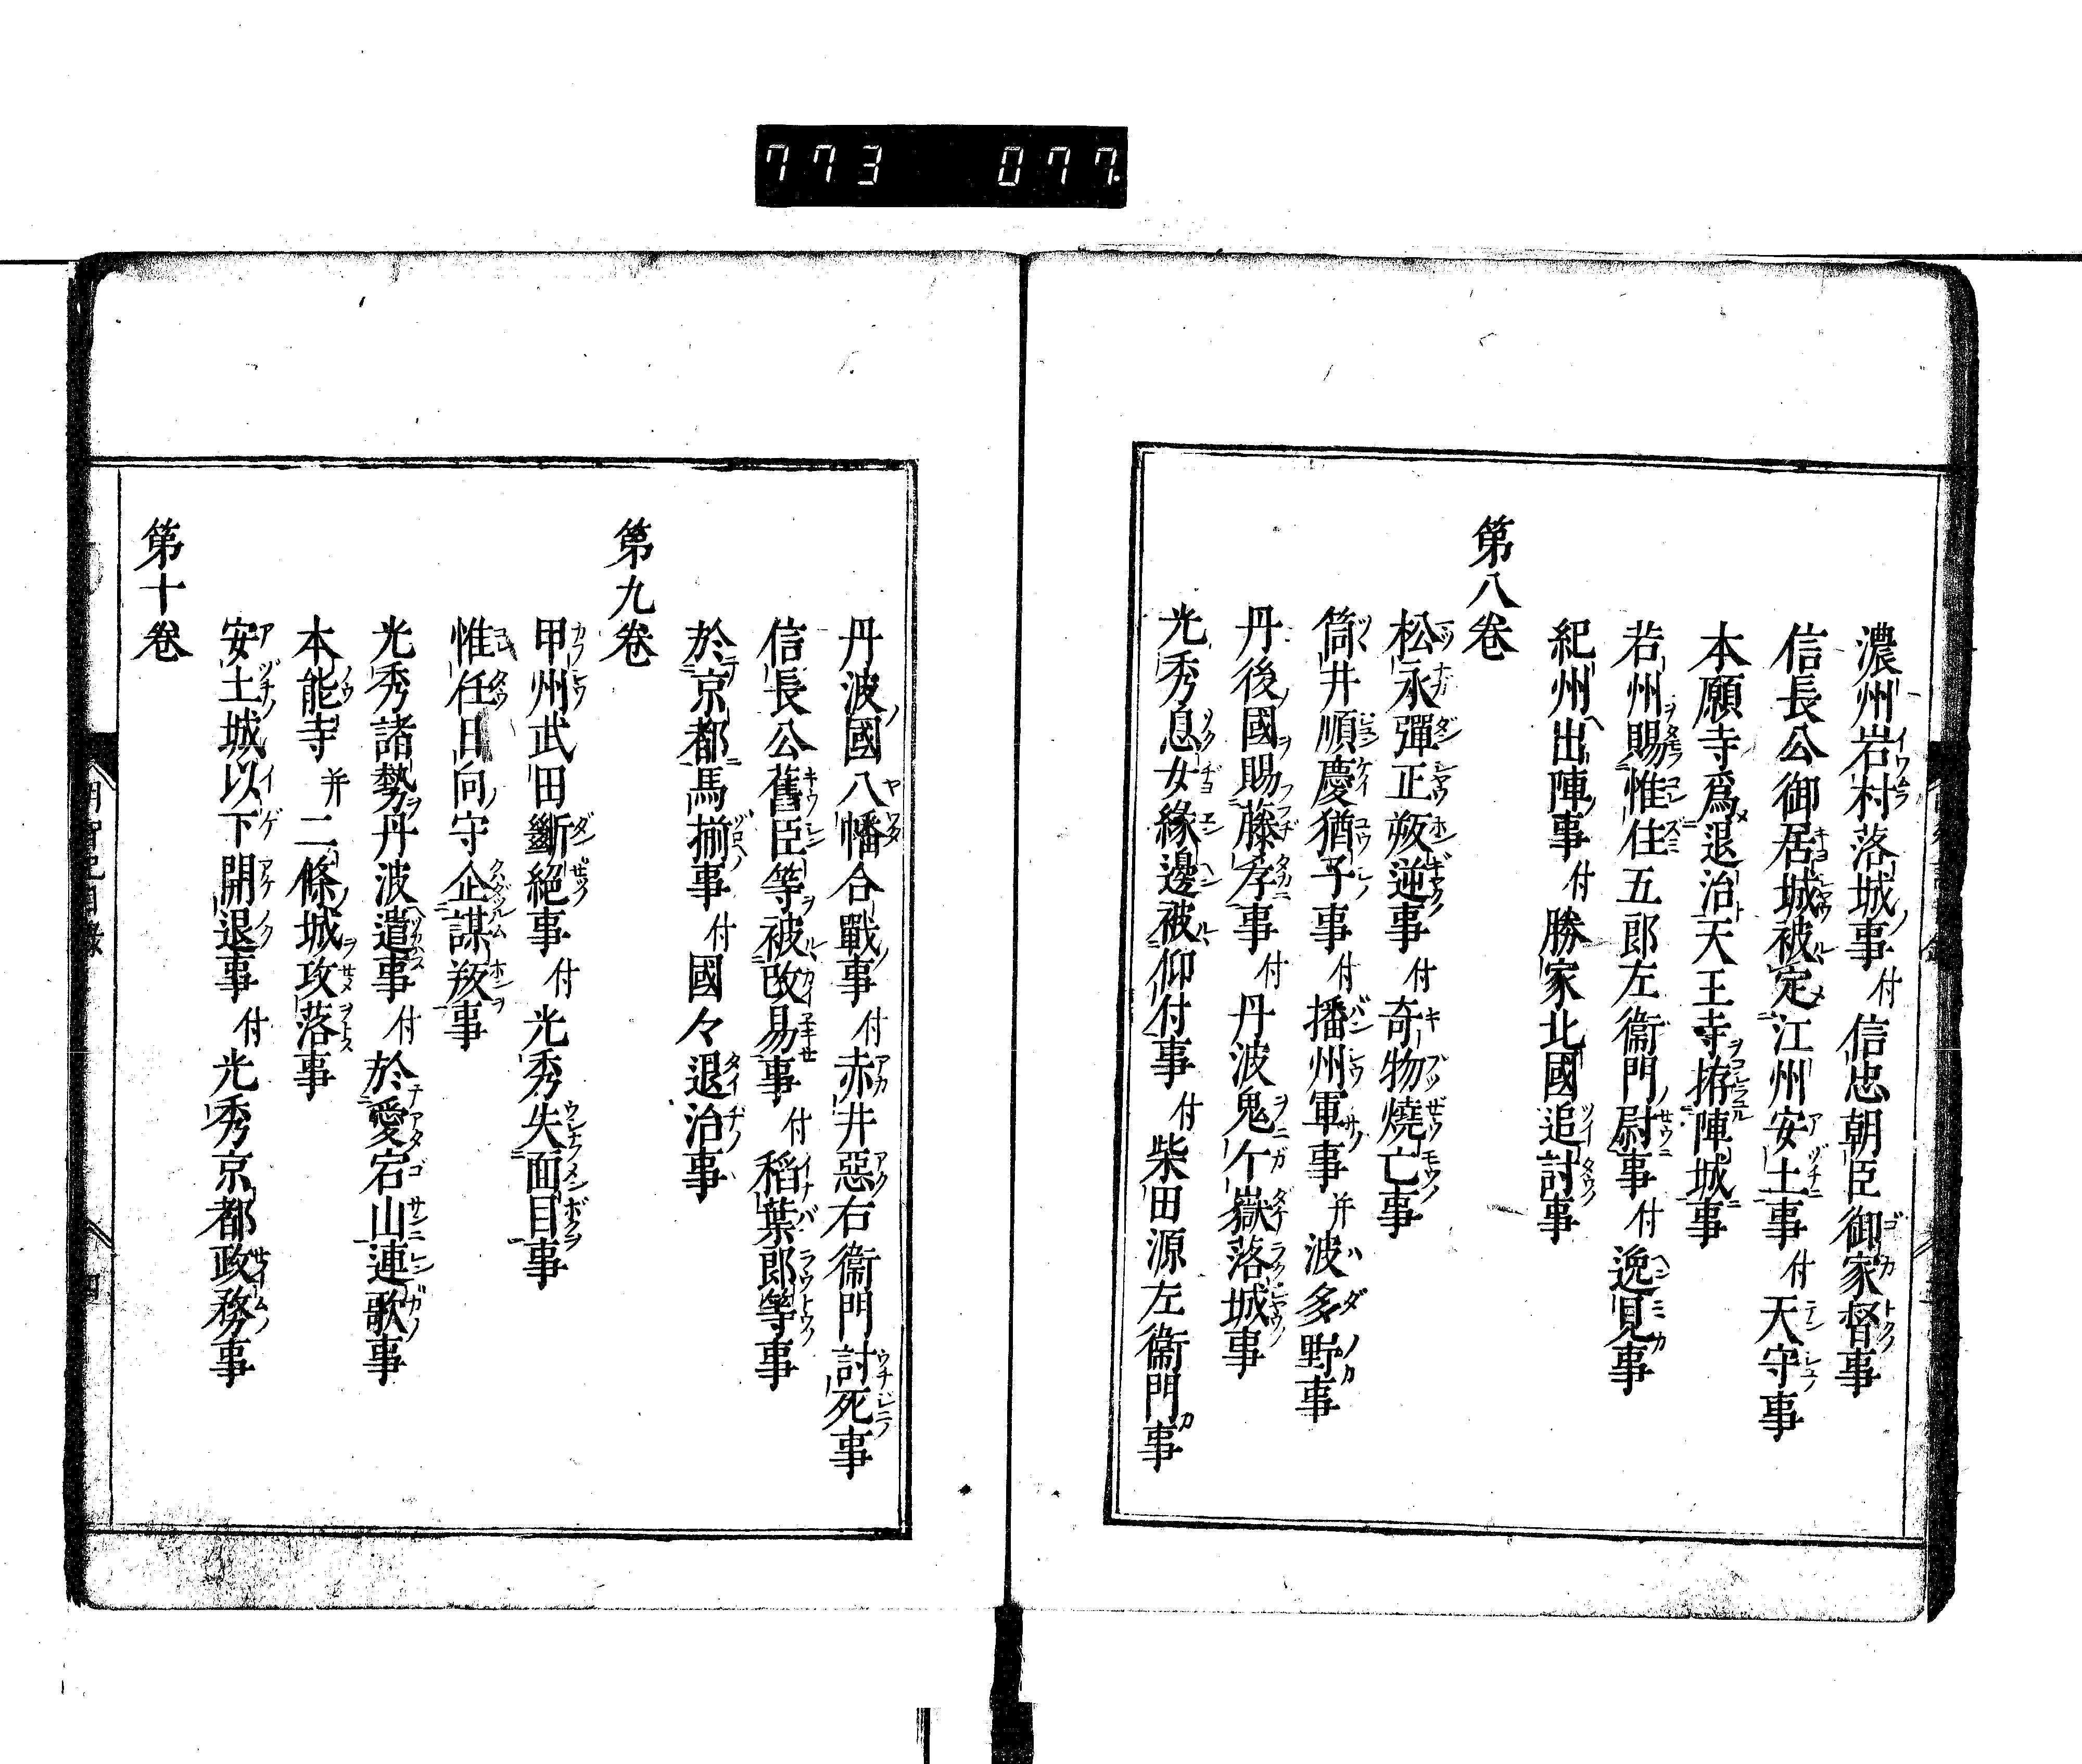 773 077
濃州岩村落城事付信忠朝臣御家督事
信長公御居城被定江州安土事付天守事
本願寺爲退治天王寺拵陣城事
若州賜惟住五郎左衞門尉事付逸見事
紀州出陣事付勝家北國追討事
第八卷
松永彈正叛逆事付奇物燒亡事
筒井順慶猶子事付播州軍事并波多野事
丹後國賜藤孝事付丹波鬼ケ嶽落城事
光秀息女緣邊被仰付事付柴田源左衞門事
丹波國八幡合戰事付赤井惡右衞門討死事
信長公舊臣等被改易事付稻葉郎等事
於京都馬揃事付國々退治事
第九卷
甲州武田斷絕事付光秀失面目事
惟任日向守企謀叛事
光秀諸勢丹波遣事付於愛宕山連歌事
本能寺并二條城攻落事
安土城以下開退事付光秀京都政務事
第十卷